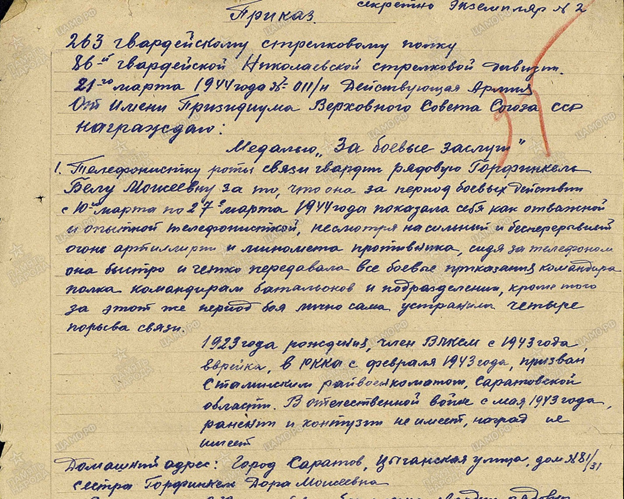 секретно Экземпляр № 2
Приказ.
263 гвардейскому стрелковому полку
86ой гвардейской Николаевской стрелковой дивизии.
21го марта 1944 года № 011/н Действующая Армия
От Имени Призидиума Верховного Совета Союза ССР
награждаю:
Медалью „За боевые заслуги"
1. Телефонистку роты связи гвардии рядовую Горфинкель
Белу Моисеевну за то, что она за период боевых действии
с 10го марта по 27е марта 1944 года показала себя как отважной
и опытной телефонисткой, несмотря на сильный и бесперерывный
огонь артиллерии и миномета противника, сидя за телефоном
она быстро и четко передавала все боевые приказания командира
полка командирам батальонов и подразделении, кроме того
за этот же период боя лично сама устранила четыре
порыва связи.
1923 года рождения, член ВЛКСМ с 1943 года,
еврейка, в РККА с февраля 1943 года, призван
Сталинским райвоенкоматом, Саратовской
области. В отечественной войне с мая 1943 года,
ранении и контузии не имеет, наград не
имеет
Домашний адрес: Город Саратов, Цыганская улица, дом №81/31
сестра Горфинкель Дора Моисеевна
ЦАМО.РФ